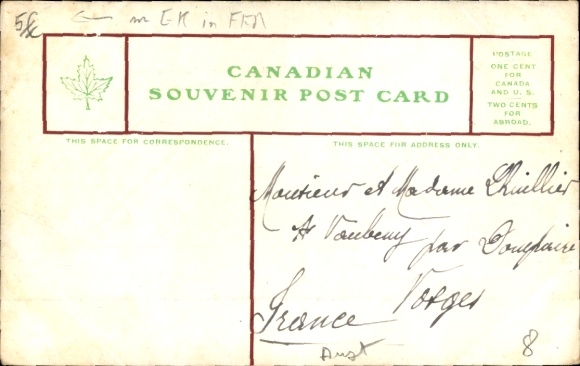 CANADIAN
SOUVENIR POST CARD
POSTAGE
ONE CENT
FOR
CANADA
AND U. S.
TWO CENTS
FOR
ABROAD.
THIS SPACE FOR CORRESPONDENCE.
THIS SPACE FOR ADDRESS ONLY.
Monsieur et Madame Lhuillier
par Dompaire
Vosges
France
8